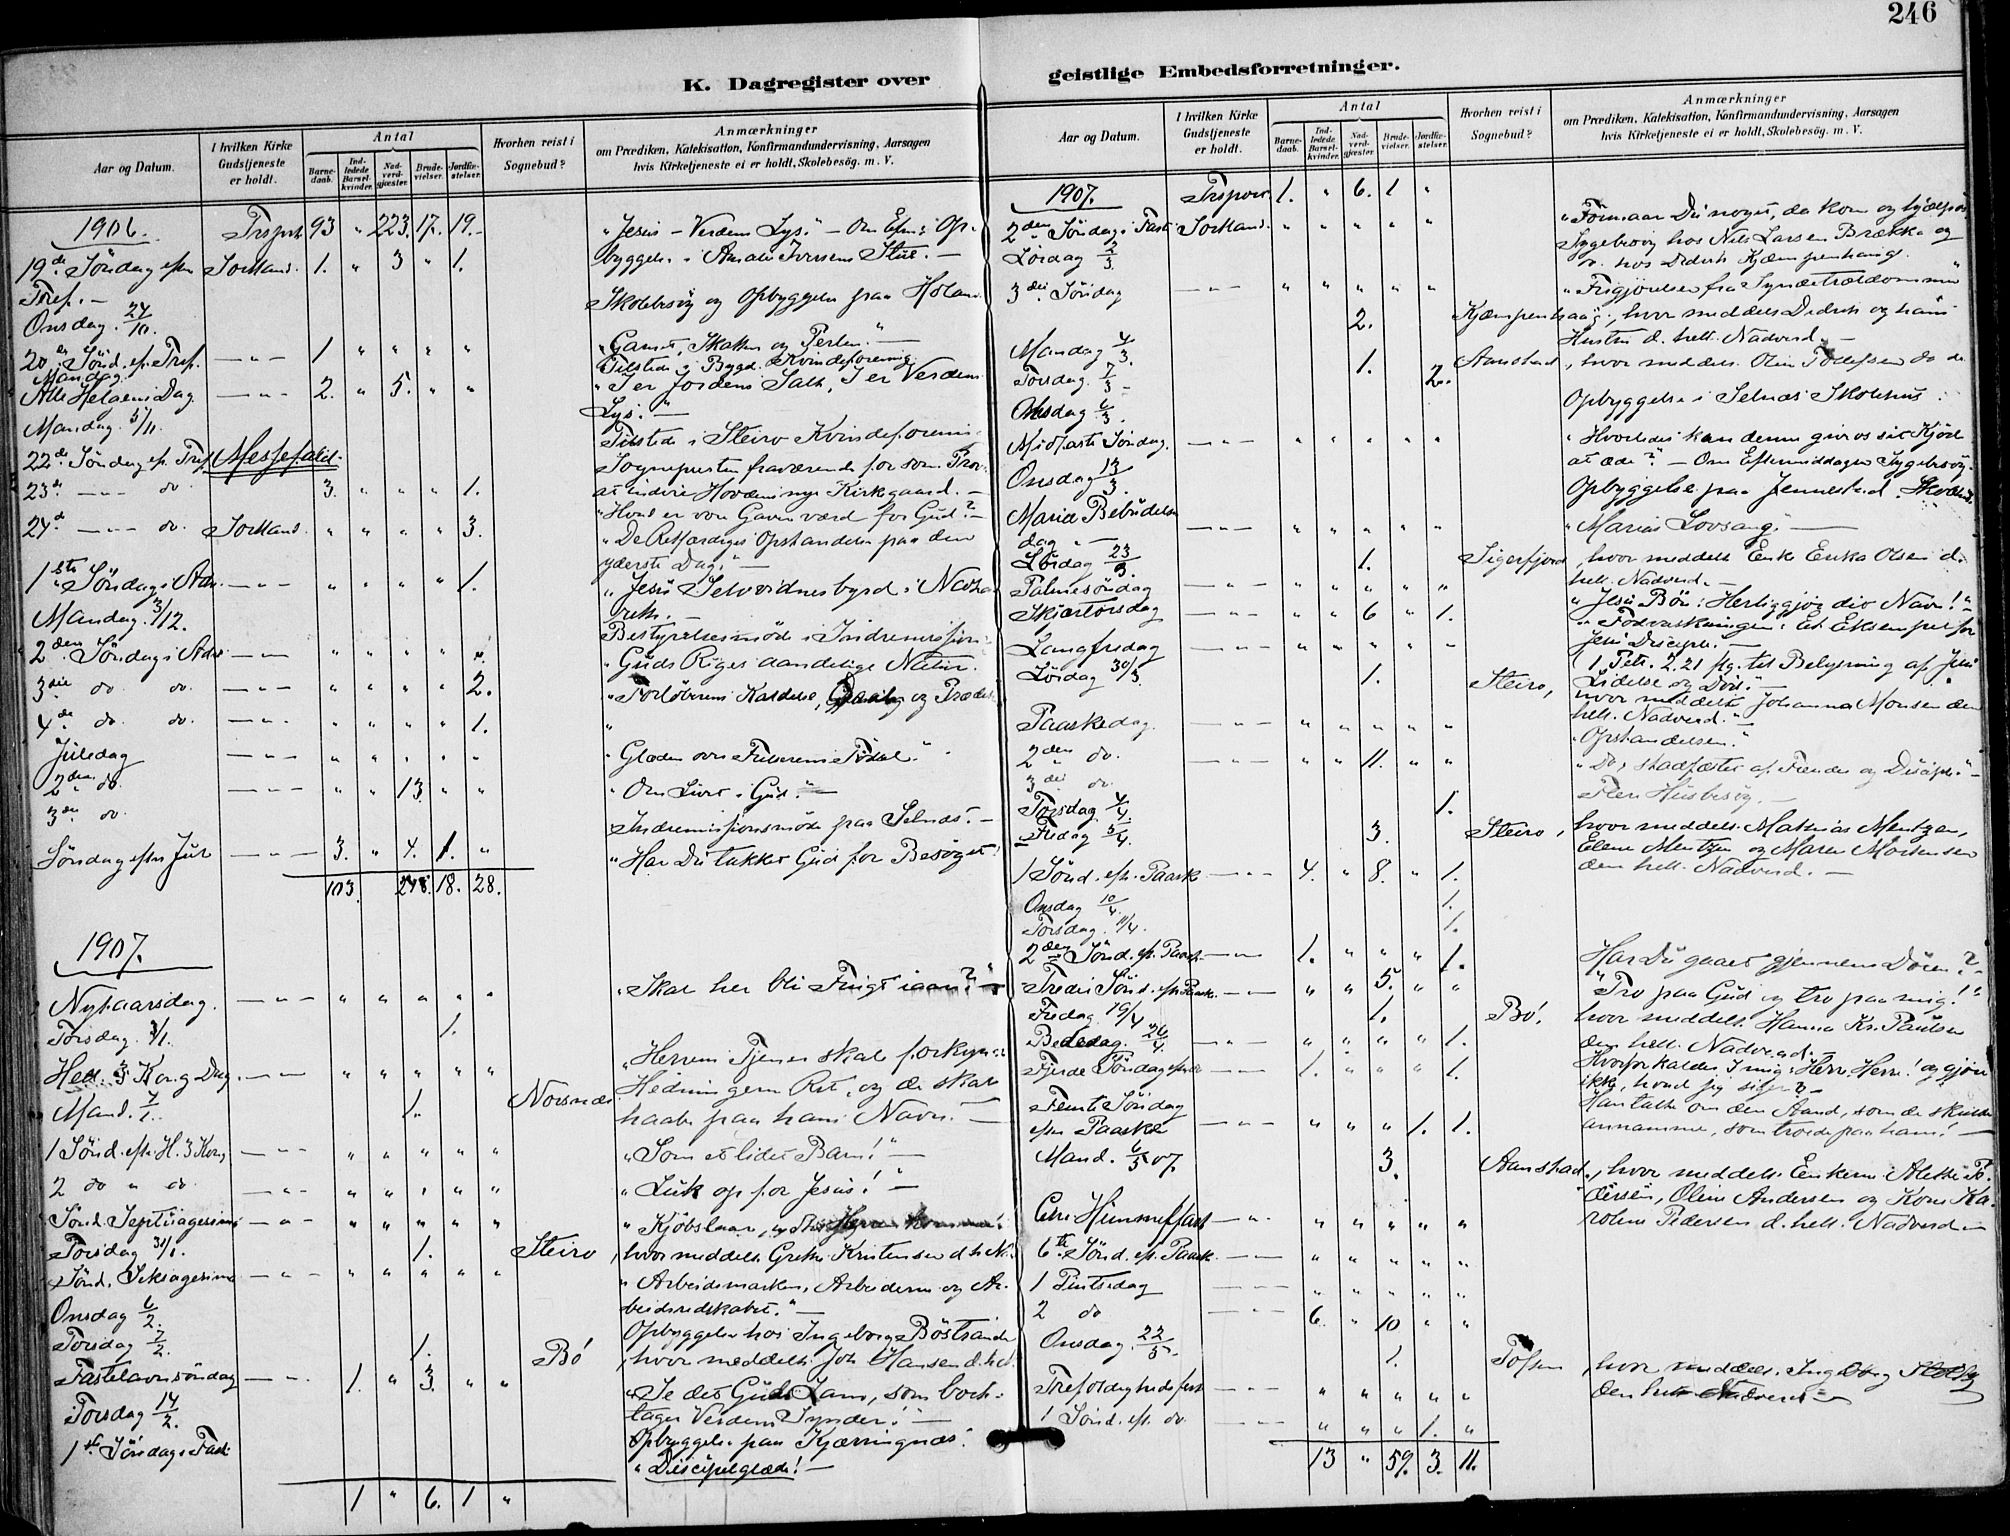 246
K. Dagregister over geistlige Embedsforretninger.
Aar og Datum.
I hvilken Kirke Gudstjeneste er holdt.
Antal
Barne-daab.
Ind-ledede Barsel-kvinder.
Nad-verd-gjæster.
Brude-vielser.
Jordfæ-stelser.
Hvorhen reist i Sognebud?
Anmærkninger
om Prædiken, Katekisation, Konfirmandundervisning, Aarsagen
hvis Kirketjeneste ei er holdt, Skolebesøg. m. V.
1906. 93 " 223. 17. 19.
"Jesus - Verdens Lys." - Om Efm: Op-
19de Søndag efter Sortland. 1. " 3 " 1.
byggelse i Amalie Iversens Stue. -
Tref. -
Onsdag 24/10.
Skolebesøg og Opbyggelse paa Holand
20de Sønd. ef. Tref. - " - 1 " " " "
Skatten og Perlen." -
Mandag
Tilstede i Bygd. Kvindeforening.
Alle Helgens Dag - " - 2. " 5. " "
"I er Jordens Salt, I er Verdens
Lys." -
Mandag 5/11.
Tilstede i Steiro Kvindeforening
22de Søndag ef. Tref. Messefald.
Sognepresten fraværende for som Prov.
23de - " - do 3. " " " 1.
at indvie Hovdens nye Kirkegaard. -
24de - " - do. Sortland. " " " " 3.
"Hvad er vor Gaven værd for Gud?" -
"De Retfærdiges Opstandelse paa den
yderste Dag." -
1ste Søndag i Adv. - " - " " " " 1.
"Jesu Selvvidnesbyrd i Naza-
reth. -
Mandag 3/12.
Bestyrelsesmøde i Indremission
2den Søndag i Adv - " -
"Guds Riges aandelige Natur.
3die do. do. - " - " " " " 2.
"Forløberens Kaldelse, og Præde
4de do. do. - " - " " " " 1.
Juledag - " - " " " " "
"Glæden over Frelserens Fødsel."
2den do. - " - " " 13 " "
"Om Livet i Gud." -
3die do.
Indremissionsmøde paa Selnæs. -
Søndag efter Jul - " - 3. " 4. 1. "
"Har Du takket Gud for Besøget?
103. 248. 18. 28.
1907.
Nytaarsdag. - " - " " " " "
"Skal her bli Frugt iaar?" -
Torsdag 3/1. 1.
Hell. 3 Kong Dag. - " - " " " " "
"Herrens Tjener skal forkynde
Hedningerne Ret, og de skal
Mand. 7/1. 1. Norsnæs
haabe paa hans Navn." -
1 Sønd. efr. H. 3 Kong - " - " " " " "
"Som et lidet Barn!" -
2 do " do - " - " " " " "
"Luk op for Jesus!" -
Sønd. Septuagesima - " - " " " " "
"Kjøbslaar,
Torsdag 31/1. 1. Steiro
, hvor meddelt Grethe Kristensen d. h. N.
Sønd. Seksagesima - " - " " " " "
"Arbeidsmarken, Arbeideren og Ar-
beidsredskabet." -
Onsdag 6/2
Opbyggelse hos Ingeborg Bøstrand
Torsdag 7/2. 1. Bø
, hvor meddelt Joh Hansen d. hel.
Fastelavnssøndag - " - 1. " 3. " "
"Se det Guds Lam, som bort-
tager Verdens Synder!" -
Torsdag 14/2.
Opbyggelse paa Kjærringnæs.
1ste Søndag i Fast
"Discipelglæde! -
1 " 6. 1 "
Aar og Datum.
I hvilken Kirke Gudstjeneste er holdt.
Antal
Barne-daab.
Ind-ledede Barsel-kvinder.
Nad-verd-gjæster.
Brude-vielser.
Jordfæ-stelser.
Hvorhen reist i Sognebud?
Anmærkninger
om Prædiken, Katekisation, Konfirmandundervisning, Aarsagen
hvis Kirketjeneste ei er holdt, Skolebesøg. m. V.
1907. 1. " 6. 1 "
2den Søndag i Fast Sortland. " " " " "
"Formaar Du noget, da kom og hjælp os
Lørdag 2/3.
Sygebesøg hos Nils Larsen Brække og
hos Dedrik Kjæmpenhaug.
3die Søndag - " - " " " " "
"Frigjørelse fra Syndetrældommen"
Mandag 4/3. 2. Kjæmpenhaug
, hvor meddelt Dedrik og hans
Hustru d. hell. Nadverd. -
Torsdag 7/3 1. 2. Aanstad
, hvor meddelt
Onsdag 6/3.
Opbyggelse i Selnæs Skolehus.
Midfaste Søndag. - " - " " " " "
"Hvorledes kan denne give os sit Kjød
at æde?" - Om Eftermiddagen Sygebesøg.
Onsdag 13/3.
Opbyggelse paa Jennestad.
Mariæ Bebudelses
dag. - - " - " " " " "
"Marias Lovsang." -
Lørdag 23/3. 1. Sigerfjord
, hvor meddelt Enke Erika Olsen d.
hell. Nadverd. -
Palmesøndag - " - " " " " "
"Jesu Bøn: Herliggjør dit Navn!" -
Skjærtorsdag - " - " " 6 " 1.
"Fodvaskningen. Et Eksempel for
Jesu Disciple. -
Langfredag - " - " " " " "
1 Petr. 2.21 flg. til Belysning af Jesu
Lidelse og Død." -
Lørdag 30/3. 1. Steiro,
hvor meddelt Johanna Monsen den
hell. Nadverd." -
Paaskedag. - " - " " " " "
"Opstandelsen." -
2den do. - " - " " 11. " "
"Do, stadfæstet af Fiender og Disciple" -
3die do.
Flere Husbesøg. -
Torsdag 4/4. 1.
Fredag 5/4. 3. Steiro,
hvor meddelt Mathias Mentzen,
Elene Mentzen og Maren Mortensen
den hell. Nadverd. -
1 Sønd. eft. Paask - " - 4. " 8. " 1.
Onsdag 10/4. 1.
Torsdag 11/4. 1.
2den Sønd. eft. Paask - " - 1. " " " 1.
Har Du gaaet gjennem Døren? -
Tredie Sønd. eft Paask. - " - " " 5. " "
"Tro paa Gud og tro paa mig!"
Fredag 19/4 1. Bø.
hvor meddelt Hanna Kr. Paulsen
den hell. Nadverd. -
Bededag. 26/4. - " - " " " " 1.
Hvorfor kalder I mig: Herre, Herre! og gjøre
ikke, hvad jeg siger? -
Fjerde Søndag efter do - " - 1. " " " 1.
Han talte om den Aand, som de skulde
annamme, som troede paa ham! -
Femte Søndag
efter Paaske - " - " " " 1. 1.
Mand. 6/5 07. 3. Aanstad
, hvor meddelt Enkerne
Oline Andersen og Karoline Pedersen d. hell. Nadverd -
Cri Himmelfart - " - " " " " "
6te Sønd. eft. Paask. - " - " " " " "
1 Pintsedag - " - " " " " "
2 do - " - 6. " 10 " "
Onsdag 22/5. 1.
, hvor meddelt Ingeborg
den hell. Nadverd -
Trefoldighedsfest - " - " " " " "
1 Sønd. eft. do. - " - " " " 1. "
13 " 59. 3. 11.